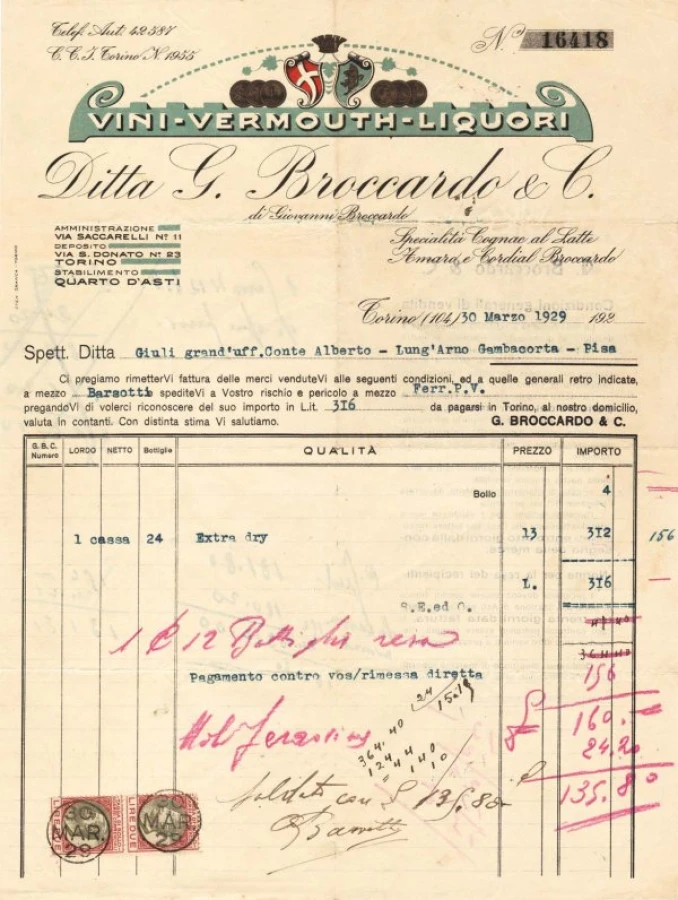 Telef. Aut. 42587
C. C. I. Torino N. 1955
N. 16418
VINI-VERMOUTH-LIQUORI
Ditta G. Broccardo & C.
di Giovanni Broccardo
AMMINISTRAZIONE
VIA SACCARELLI Nº 11
DEPOSITO
VIA S. DONATO Nº 23
TORINO
STABILIMENTO
QUARTO D'ASTI
Specialità Cognac al Latte
Amaro e Cordial Broccardo
Torino (104) 30 Marzo 1929 192
Spett. Ditta Giuli grand'uff.Conte Alberto - Lung'Arno Gambacorta - Pisa
Ci pregiamo rimetterVi fattura delle merci venduteVi alle seguenti condizioni, ed a quelle generali retro indicate,
a mezzo Barsotti spediteVi a Vostro rischio e pericolo a mezzo Ferr.P.V.
pregandoVi di volerci riconoscere del suo importo in L.it. 316 da pagarsi in Torino, al nostro domicilio,
valuta in contanti. Con distinta stima Vi salutiamo. G. BROCCARDO & C.
G. B. C. Numero LORDO NETTO Bottiglie QUALITÀ PREZZO IMPORTO
Bollo 4
1 cassa 24 Extra dry 13 312 156
L. 316
S.E.ed O.
1 12 Bottiglie resa
156
Pagamento contro vos/rimessa diretta
24
15.19
160.-
364.40
24.20
135.80
Saldato con £ 135.80
LIRE DUE LIRE DUE
30 MAR. 29 30 MAR. 29